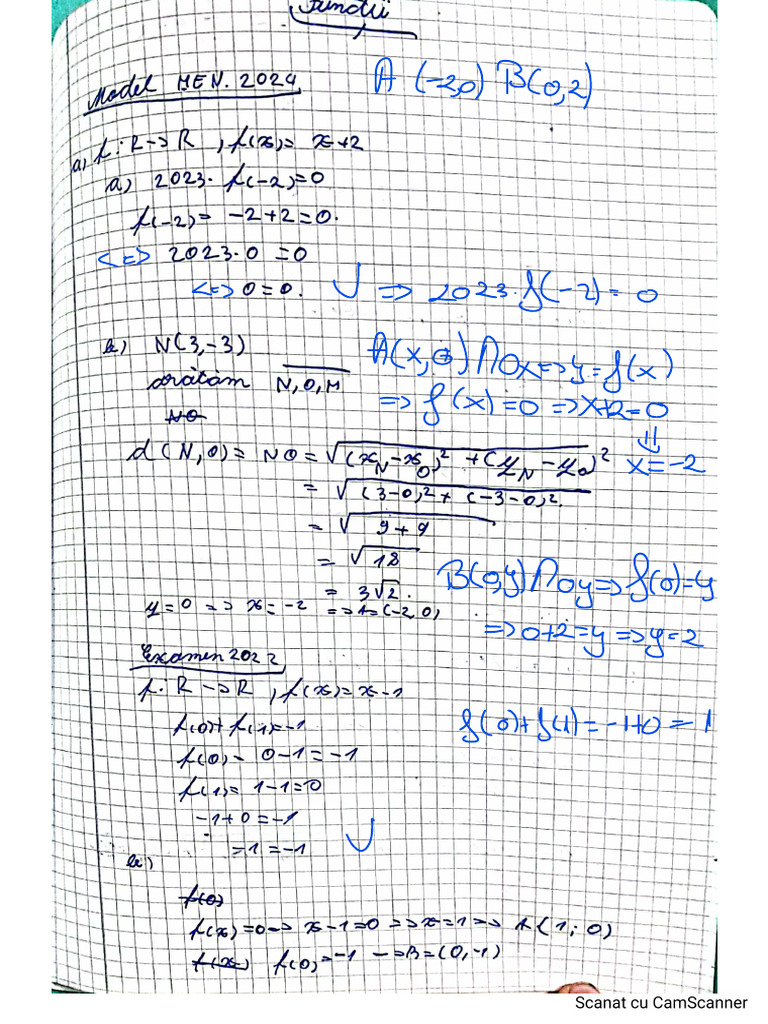 Funcții
Model MEN. 2024
A (-2,0) B(0,2)
a, f: R -> R , f(x) = x+2
a) 2023. f(-2)=0
f(-2)= -2+2=0.
<=> 2023.0 =0
<=> 0=0.
=> 2023.f(-2)= 0
b) N(3,-3)
arătăm N,O,M
NO
A(x,0) ∩Ox=>y=f(x)
=> f(x)=0 =>x+2=0
⇓
x=-2
d(N,O)= NO = √(x_N-x_O)² + (y_N-y_O)²
= √(3-0)²+ (-3-0)².
= √9+9
= √18
= 3√2.
B(0,y)∩Oy=>f(0)=y
=>0+2=y=>y=2
y=0 => x=-2 =>A=(-2,0)
Examen 2022
f: R -> R , f(x)=x-1
f(0)+f(1)=-1
f(0)= 0-1=-1
f(1)= 1-1=0
-1+0=-1
=1=-1
f(0)+f(1)=-1+0=-1
b)
f(0)
f(x)=0-> x-1=0 =>x=1=> A(1;0)
f(x) f(0)=-1 ->B=(0,-1)
Scanat cu CamScanner